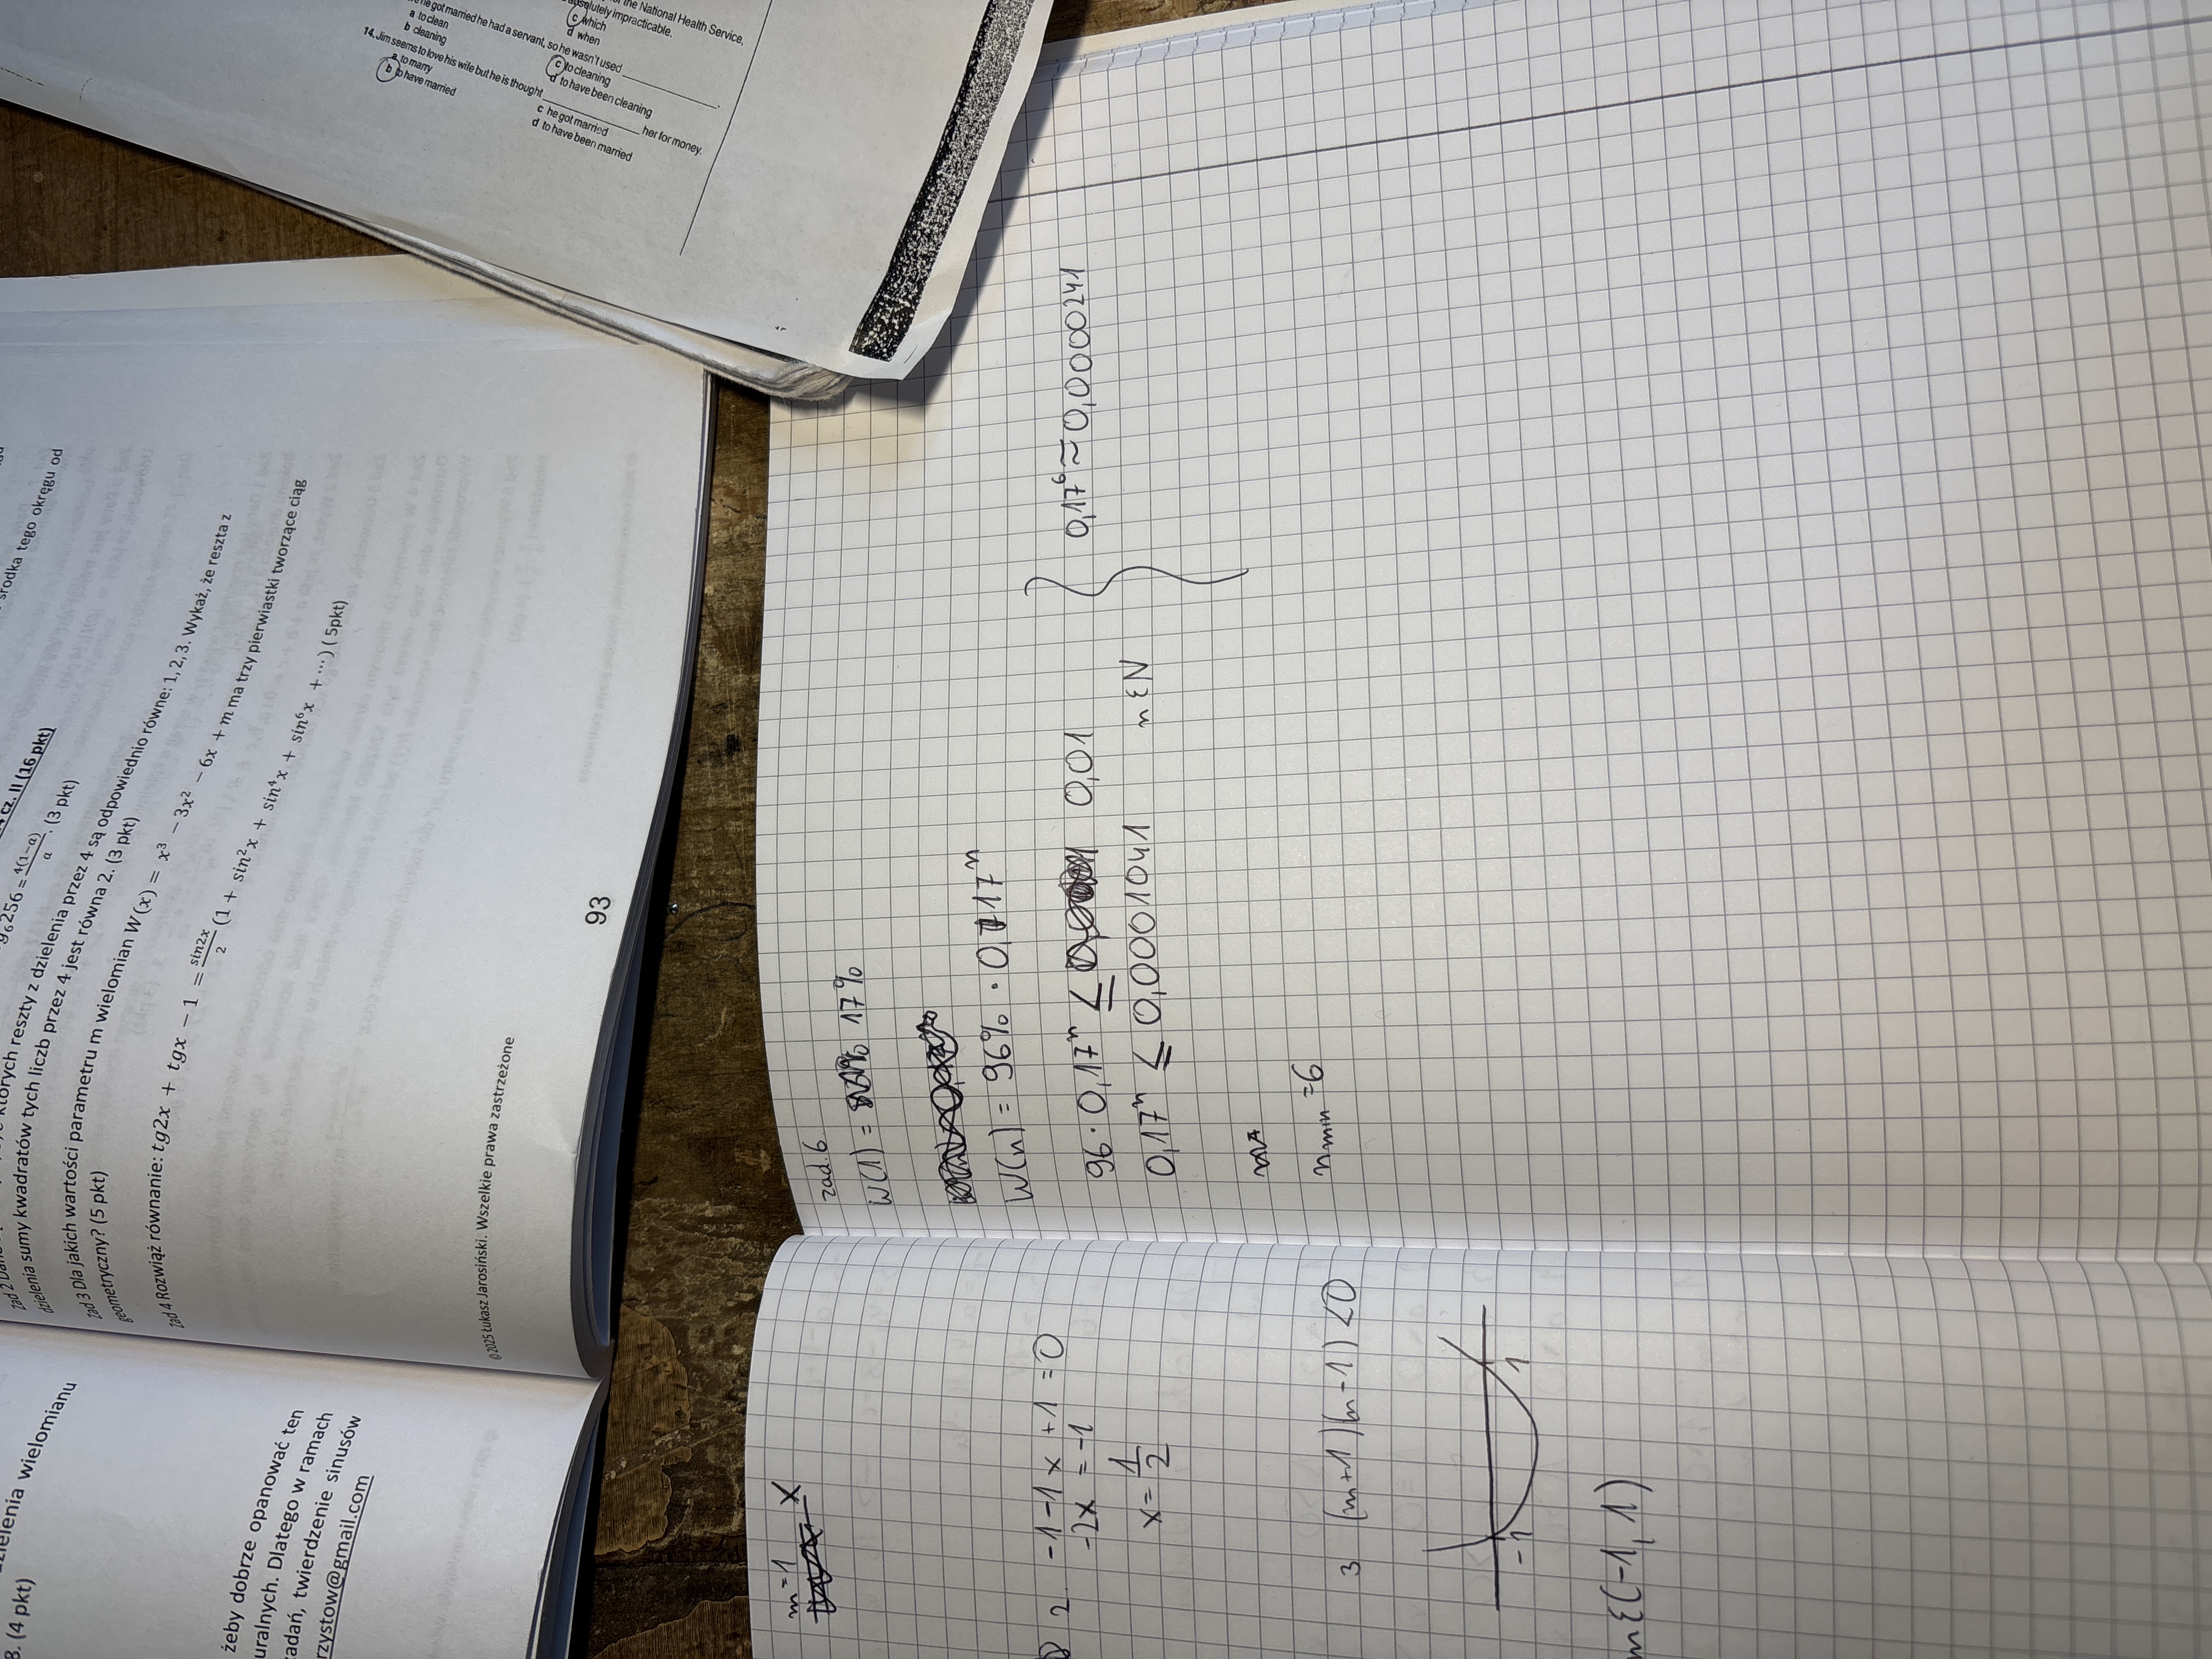 of the National Health Service,
absolutely impracticable.
c which
d when
he got married he had a servant, so he wasn't used
a to clean
b cleaning
c to cleaning
d to have been cleaning
14. Jim seems to love his wife but he is thought her for money.
a to marry
b to have married
c he got married
d to have been married
środka tego okręgu od
cz. II (16 pkt)
6256 = 4(1-a)/a. (3 pkt)
których reszty z dzielenia przez 4 są odpowiednio równe: 1, 2, 3. Wykaż, że reszta z
dzielenia sumy kwadratów tych liczb przez 4 jest równa 2. (3 pkt)
zad 3 Dla jakich wartości parametru m wielomian W(x) = x³ − 3x² − 6x + m ma trzy pierwiastki tworzące ciąg
geometryczny? (5 pkt)
zad 4 Rozwiąż równanie: tg2x + tgx − 1 = sin2x/2 (1 + sin²x + sin⁴x + sin⁶x + ⋯) (5pkt)
93
©2025 Łukasz Jarosiński. Wszelkie prawa zastrzeżone
dzielenia wielomianu
8. (4 pkt)
żeby dobrze opanować ten
uralnych. Dlatego w ramach
zadań, twierdzenie sinusów
rzystow@gmail.com
zad. 6
W(1) = 17%
W(n) = 96% · 0,17ⁿ
96 · 0,17ⁿ ≤ 0,01
0,17ⁿ ≤ 0,0001041 n∈N
n min = 6
0,17⁶ ≈ 0,0000241
m=1
x
2. -1-1x+1=0
-2x=-1
x=1/2
3 (m+1)(m-1)<0
-1 1
m∈(-1,1)